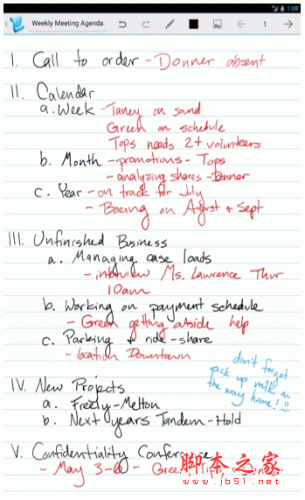 1:08
Weekly Meeting Agenda
1
I. Call to order - Donner absent
II. Calendar
a. Week - Taney on sand
Green on schedule
Tops needs 2+ volunteers
b. Month - promotions - Tops
- analyzing shares - Donner
c. Year - on track for July
- Boeing on August + Sept
III. Unfinished Business
a. Managing case loads
- interview Ms. Lawrence Thur
10am
b. Working on payment schedule
- Green getting outside help
c. Parking + ride-share
- location Downtown
don't forget
pick up milk on
the way home!
IV. New Projects
a. Freely-Melton
b. Next years Tandem-Hold
V. Confidentiality Conference
- May 3-6 - Green
脚本之家
www.jb51.net